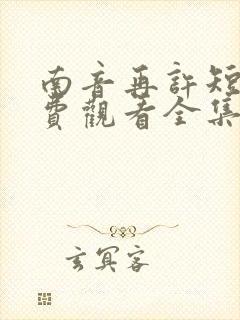 南音再許短
費觀看全集
玄冥客